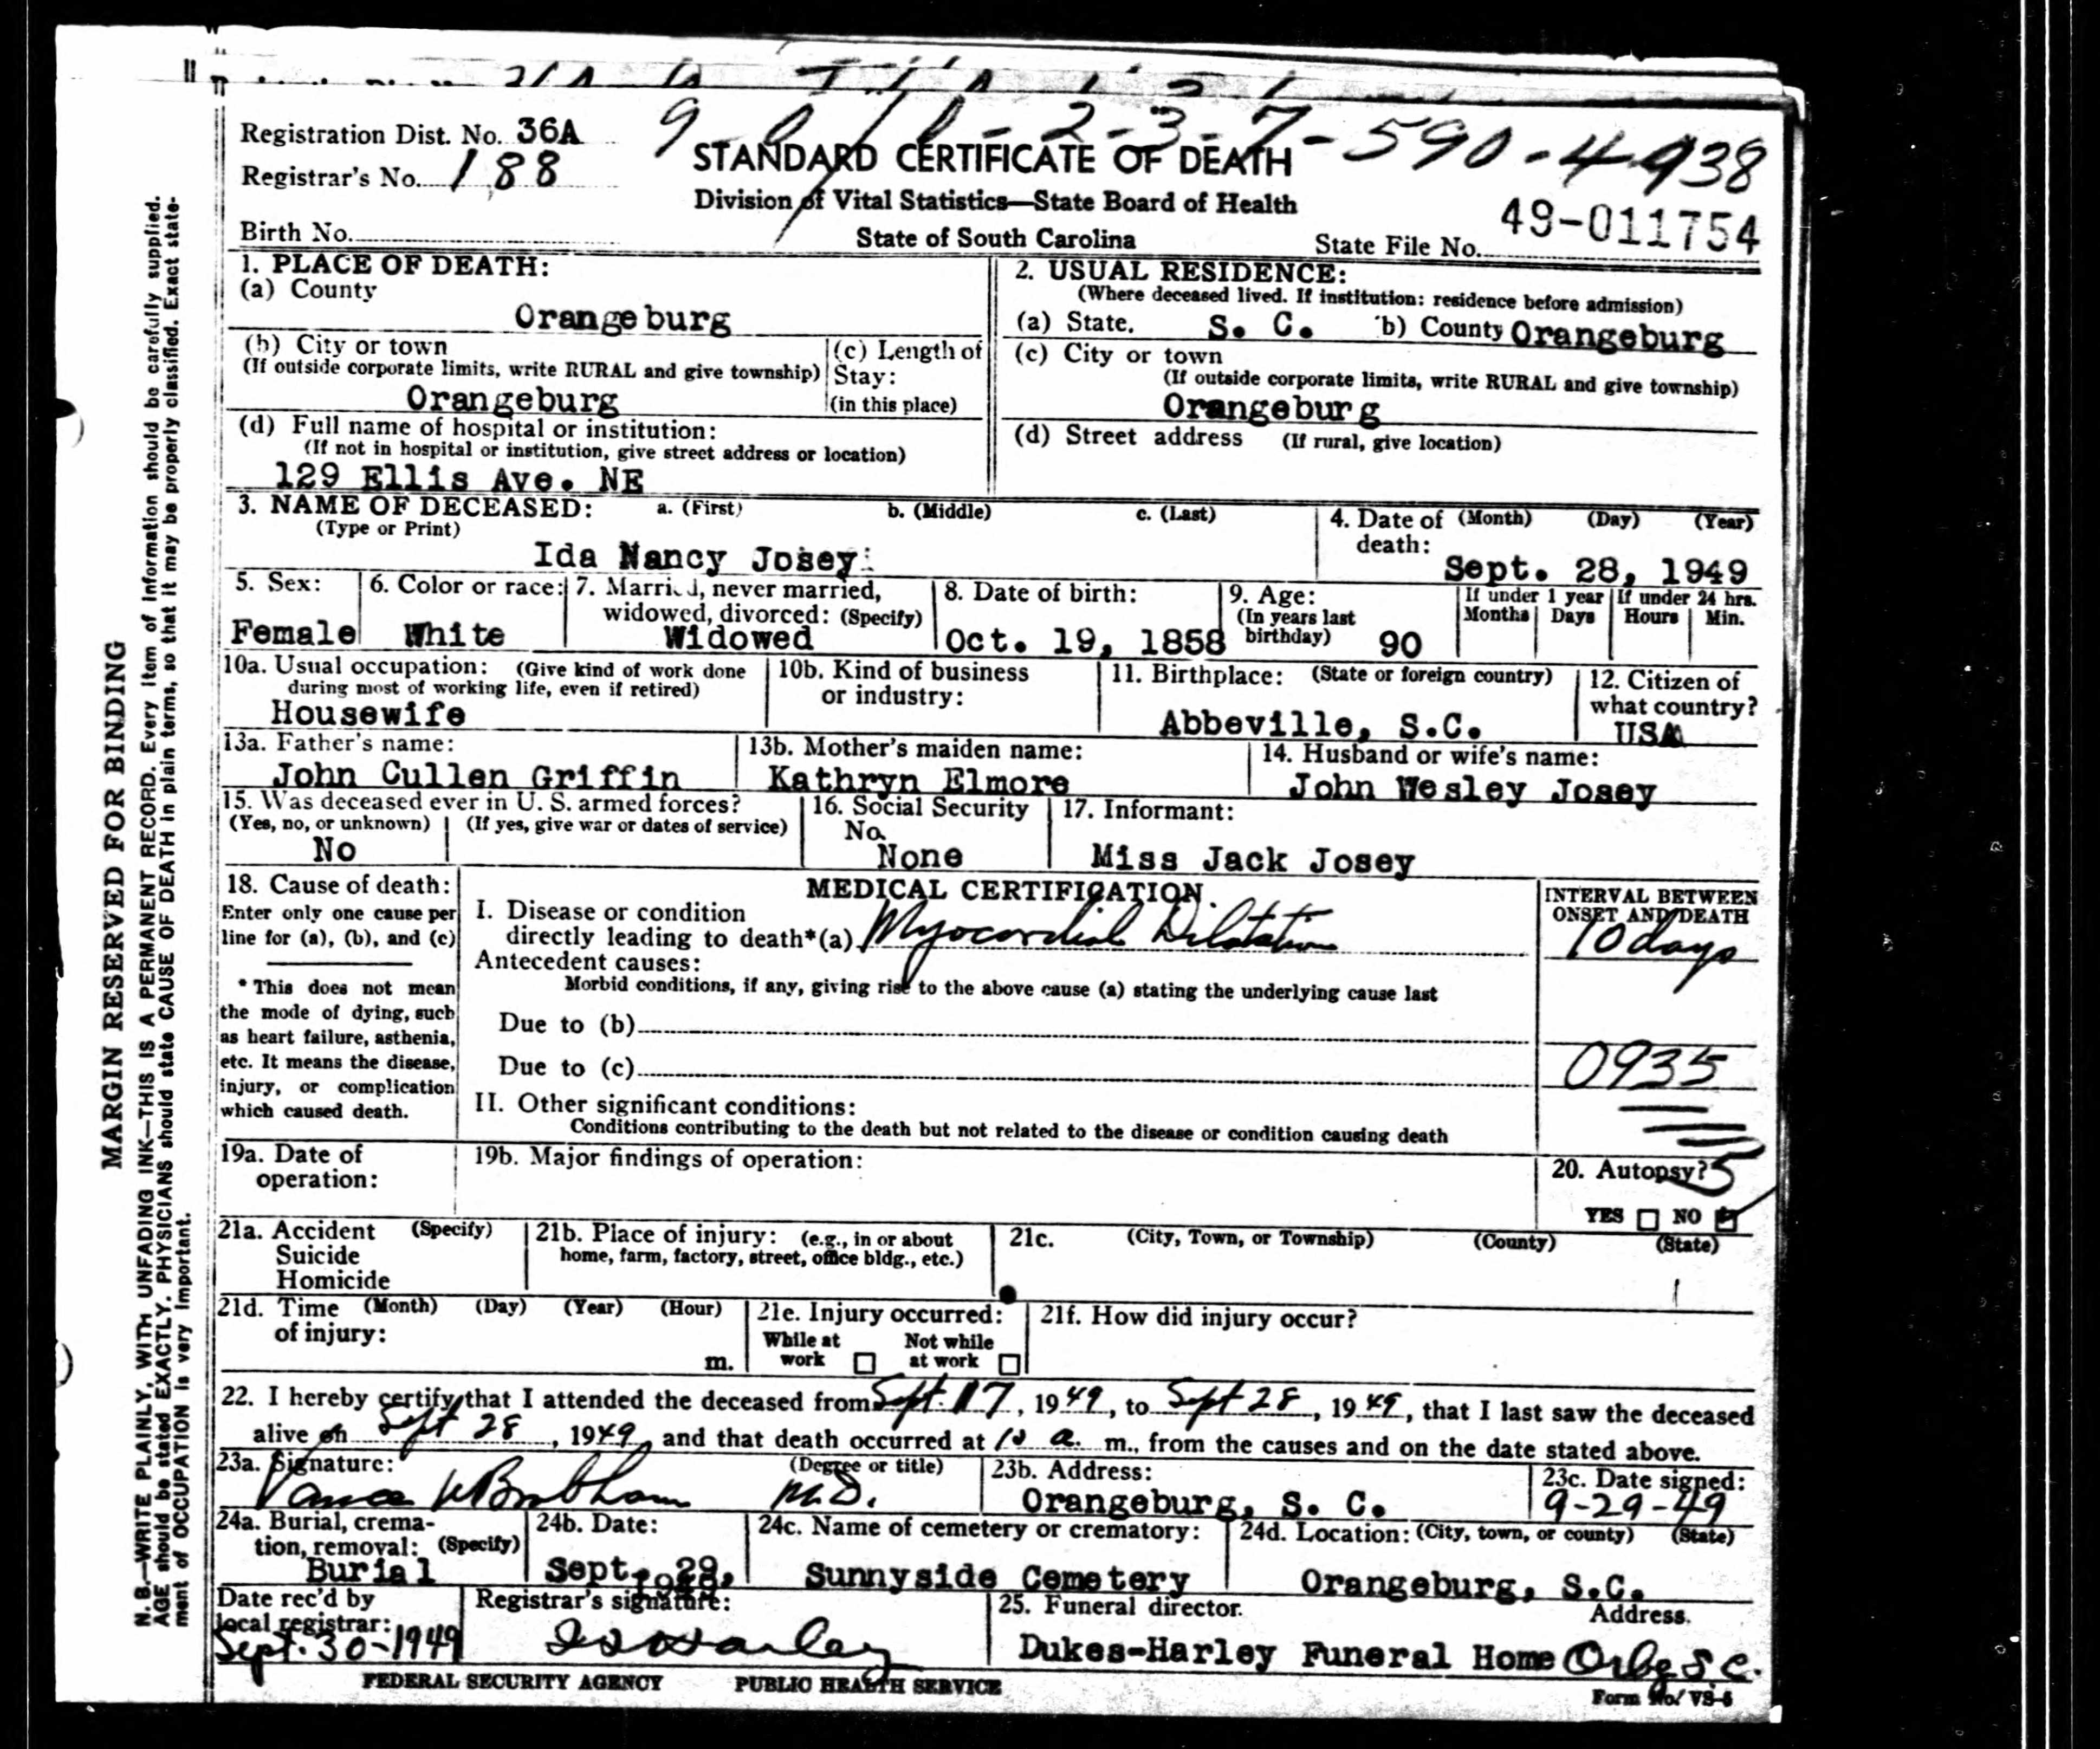 Registration Dist. No. 36A
Registrar's No. 188
Birth No.
STANDARD CERTIFICATE OF DEATH
Division of Vital Statistics—State Board of Health
State of South Carolina
590-4-938
State File No. 49-011754
1. PLACE OF DEATH:
(a) County
Orangeburg
(b) City or town
(If outside corporate limits, write RURAL and give township)
Orangeburg
(c) Length of
Stay:
(in this place)
(d) Full name of hospital or institution:
(If not in hospital or institution, give street address or location)
129 Ellis Ave. NE
2. USUAL RESIDENCE:
(Where deceased lived. If institution: residence before admission)
(a) State. S. C. b) County Orangeburg
(c) City or town
(If outside corporate limits, write RURAL and give township)
Orangeburg
(d) Street address (If rural, give location)
3. NAME OF DECEASED: a. (First) b. (Middle) c. (Last)
(Type or Print)
Ida Nancy Josey
4. Date of (Month) (Day) (Year)
death:
Sept. 28, 1949
5. Sex:
Female
6. Color or race:
White
7. Married, never married,
widowed, divorced: (Specify)
Widowed
8. Date of birth:
Oct. 19, 1858
9. Age:
(In years last
birthday) 90
If under 1 year
Months Days
If under 24 hrs.
Hours Min.
10a. Usual occupation: (Give kind of work done
during most of working life, even if retired)
Housewife
10b. Kind of business
or industry:
11. Birthplace: (State or foreign country)
Abbeville, S.C.
12. Citizen of
what country?
USA
13a. Father's name:
John Cullen Griffin
13b. Mother's maiden name:
Kathryn Elmore
14. Husband or wife's name:
John Wesley Josey
15. Was deceased ever in U. S. armed forces?
(Yes, no, or unknown) (If yes, give war or dates of service)
No
16. Social Security
No.
None
17. Informant:
Miss Jack Josey
18. Cause of death:
Enter only one cause per
line for (a), (b), and (c)
* This does not mean
the mode of dying, such
as heart failure, asthenia,
etc. It means the disease,
injury, or complication
which caused death.
MEDICAL CERTIFICATION.
I. Disease or condition
directly leading to death*(a) Myocordial Dilatation
Antecedent causes:
Morbid conditions, if any, giving rise to the above cause (a) stating the underlying cause last
Due to (b)
Due to (c)
II. Other significant conditions:
Conditions contributing to the death but not related to the disease or condition causing death
INTERVAL BETWEEN
ONSET AND DEATH
10 days
0935
19a. Date of
operation:
19b. Major findings of operation:
20. Autopsy? 5
YES NO
21a. Accident (Specify)
Suicide
Homicide
21b. Place of injury: (e.g., in or about
home, farm, factory, street, office bldg., etc.)
21c. (City, Town, or Township) (County) (State)
21d. Time (Month) (Day) (Year) (Hour)
of injury:
m.
21e. Injury occurred:
While at Not while
work at work
21f. How did injury occur?
22. I hereby certify that I attended the deceased from Sept. 17, 1949, to Sept 28, 1949, that I last saw the deceased
alive on Sept 28, 1949, and that death occurred at 10 a. m., from the causes and on the date stated above.
23a. Signature: (Degree or title)
Vance W Brabham M.D.
23b. Address:
Orangeburg, S. C.
23c. Date signed:
9-29-49
24a. Burial, crema-
tion, removal: (Specify)
Burial
24b. Date:
Sept. 29,
24c. Name of cemetery or crematory:
Sunnyside Cemetery
24d. Location: (City, town, or county) (State)
Orangeburg, S.C.
Date rec'd by
local registrar:
Sept. 30-1949
Registrar's signature:
Harley
25. Funeral director. Address.
Dukes-Harley Funeral Home Orbg S.C.
FEDERAL SECURITY AGENCY PUBLIC HEALTH SERVICE
Form No. VS-5
MARGIN RESERVED FOR BINDING
N. B.—WRITE PLAINLY, WITH UNFADING INK—THIS IS A PERMANENT RECORD. Every item of information should be carefully supplied.
AGE should be stated EXACTLY. PHYSICIANS should state CAUSE OF DEATH in plain terms, so that it may be properly classified. Exact state-
ment of OCCUPATION is very important.